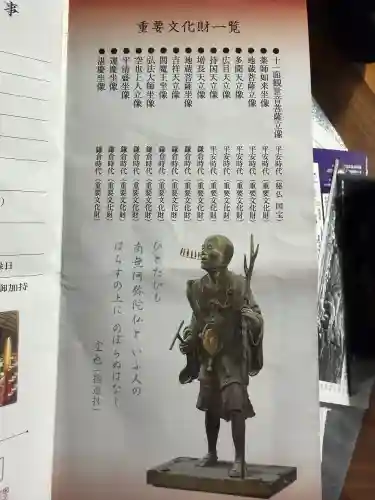 重要文化財一覧
●十一面観世音菩薩立像 平安時代（秘仏 国宝）
●薬師如来坐像 平安時代（重要文化財）
●地蔵菩薩立像 平安時代（重要文化財）
●多聞天立像 平安時代（重要文化財）
●広目天立像 平安時代（重要文化財）
●持国天立像 平安時代（重要文化財）
●増長天立像 鎌倉時代（重要文化財）
●吉祥天立像
●地蔵菩薩坐像 鎌倉時代（重要文化財）
●閻魔王坐像 鎌倉時代（重要文化財）
●弘法大師坐像 鎌倉時代（重要文化財）
●空也上人立像 鎌倉時代（重要文化財）
●平清盛坐像 鎌倉時代（重要文化財）
●運慶坐像 鎌倉時代（重要文化財）
●湛慶坐像 鎌倉時代（重要文化財）
ひとたびも
南無阿弥陀仏と いふ人の
はちすの上に のぼらぬはなし
空也
事